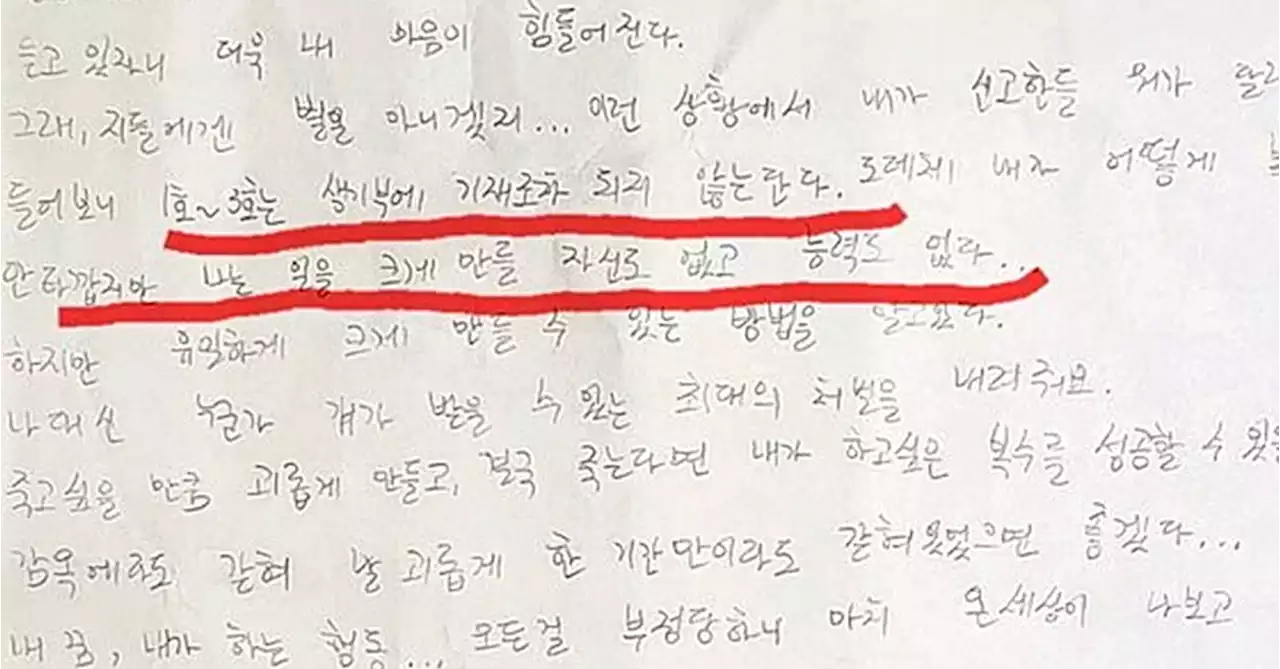 듣고 있자니 더욱 내 마음이 힘들어진다.
그래, 지들에겐 별일 아니겠지... 이런 상황에서 내가 신고한들 뭐가 달라
들어보니 1호~3호는 생기부에 기재조차 되지 않는단다. 도데체 내가 어떻게
안타깝지만 나는 일을 크게 만들 자신도 없고 능력도 없다...
하지만 유일하게 크게 만들 수 있는 방법을 알고있다.
나대신 누군가 걔가 받을 수 있는 최대의 처벌을 내려줘요.
죽고싶을 만큼 괴롭게 만들고, 결국 죽는다면 내가 하고싶은 복수를 성공할 수 있을
감옥에라도 갇혀 날 괴롭게 한 기간만이라도 갇혀있었으면 좋겠다...
내 꿈, 내가 하는 행동... 모든걸 부정당하니 마치 온세상이 나보고